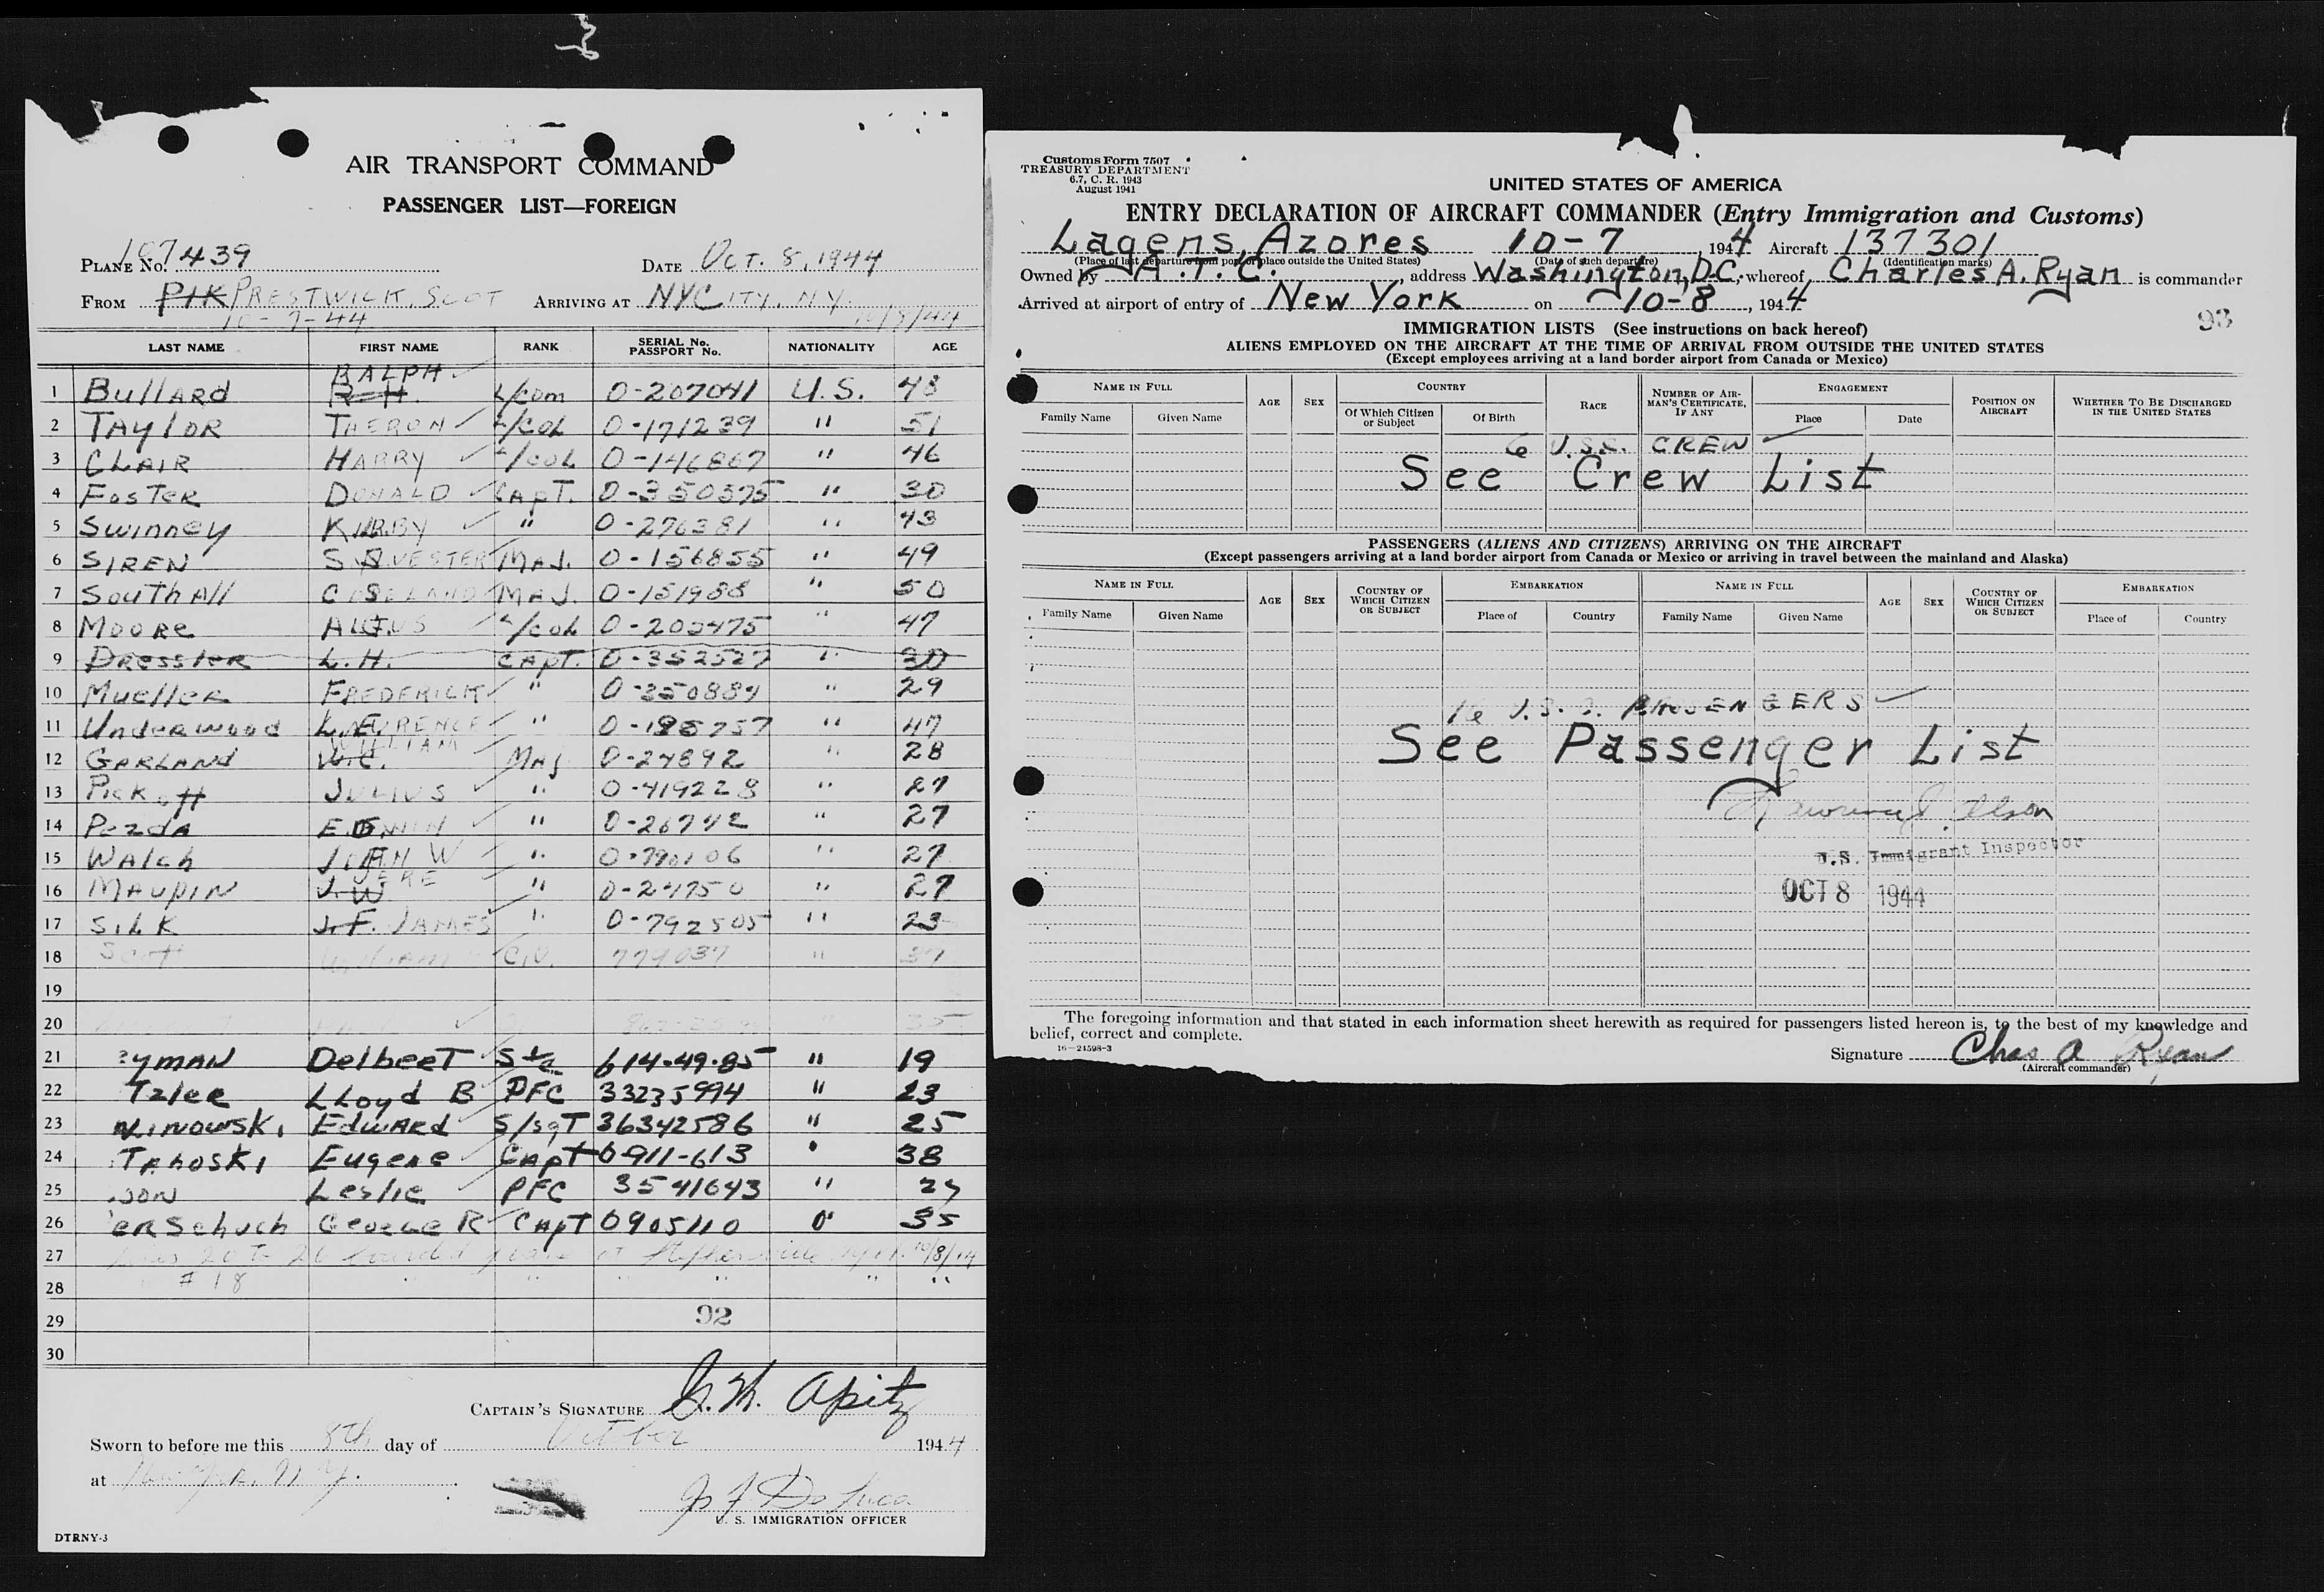 AIR TRANSPORT COMMAND
PASSENGER LIST—FOREIGN
PLANE No. 107439 DATE OCT. 8, 1944
FROM PIK PRESTWICK, SCOT ARRIVING AT NYCITY, NY.
10-7-44 10/8/44
LAST NAME FIRST NAME RANK SERIAL No. PASSPORT No. NATIONALITY AGE
1 Bullard R.H. RALPH L/COM 0-207041 U.S. 48
2 TAYLOR THERON L/COL 0-171239 " 51
3 CLAIR HARRY L/COL 0-146867 " 46
4 FOSTER DONALD CAPT. 0-350375 " 30
5 Swinney KIRBY " 0-276381 " 43
6 SIREN SYLVESTER MAJ. 0-156855 " 49
7 SouthAll MAJ. 0-151988 " 50
8 MOORE L/COL 0-203475 " 47
9 Dressler L.H. CAPT. 0-352527 " 30
10 Mueller FREDERICK " 0-350884 " 29
11 Underwood LAWRENCE " 0-185757 " 47
12 GARLAND W.C. WILLIAM MAJ 0-24892 " 28
13 Pickoff JULIUS " 0-419228 " 27
14 Pezda EDWIN " 0-26742 " 27
15 WALCh JOHN W " 0-790106 " 27
16 MAUPIN J.W. JERE " 0-24750 " 27
17 SILK J.F. JAMES " 0-792505 " 23
18 Scott William CIV. 779037 " 37
19
20 " 35
21 YMAN DelbeeT S1/c 614-49-85 " 19
22 Tzlee LLoyd B PFC 33235994 " 23
23 NINOWSKI EdwARd S/SgT 36342586 " 25
24 TAROSKI Eugene CApT 0911-613 " 38
25 SON Leslie PFC 3541643 "
26 ERSchuch GeoeGe R CApT 0905110 " 35
27 20 to 26 boarded plane at Stephenville 10/8/44
28 # 18 " " " " " "
29 92
30
CAPTAIN'S SIGNATURE Apitz
Sworn to before me this 8th day of October 1944
at New York, N.Y.
De Luca
U. S. IMMIGRATION OFFICER
DTRNY-3
Customs Form 7507
TREASURY DEPARTMENT
6.7, C. R. 1943
August 1941
UNITED STATES OF AMERICA
ENTRY DECLARATION OF AIRCRAFT COMMANDER (Entry Immigration and Customs)
Lagens, Azores 10-7, 1944 Aircraft 137301
(Place of last departure from port or place outside the United States) (Date of such departure) (Identification marks)
Owned by A.T.C., address Washington, D.C., whereof Charles A. Ryan is commander
Arrived at airport of entry of New York on 10-8, 1944
93
IMMIGRATION LISTS (See instructions on back hereof)
ALIENS EMPLOYED ON THE AIRCRAFT AT THE TIME OF ARRIVAL FROM OUTSIDE THE UNITED STATES
(Except employees arriving at a land border airport from Canada or Mexico)
NAME IN FULL AGE SEX COUNTRY RACE NUMBER OF AIRMAN'S CERTIFICATE, IF ANY ENGAGEMENT POSITION ON AIRCRAFT WHETHER TO BE DISCHARGED IN THE UNITED STATES
Family Name Given Name Of Which Citizen or Subject Of Birth Place Date
6 U.S.C. CREW
See Crew List
PASSENGERS (ALIENS AND CITIZENS) ARRIVING ON THE AIRCRAFT
(Except passengers arriving at a land border airport from Canada or Mexico or arriving in travel between the mainland and Alaska)
NAME IN FULL AGE SEX COUNTRY OF WHICH CITIZEN OR SUBJECT EMBARKATION NAME IN FULL AGE SEX COUNTRY OF WHICH CITIZEN OR SUBJECT EMBARKATION
Family Name Given Name Place of Country Family Name Given Name Place of Country
16 U.S.C. PASSENGERS
See Passenger List
U.S. Immigrant Inspector
OCT 8 1944
The foregoing information and that stated in each information sheet herewith as required for passengers listed hereon is, to the best of my knowledge and
belief, correct and complete.
16—24598-3
Signature Chas A Ryan
(Aircraft commander)